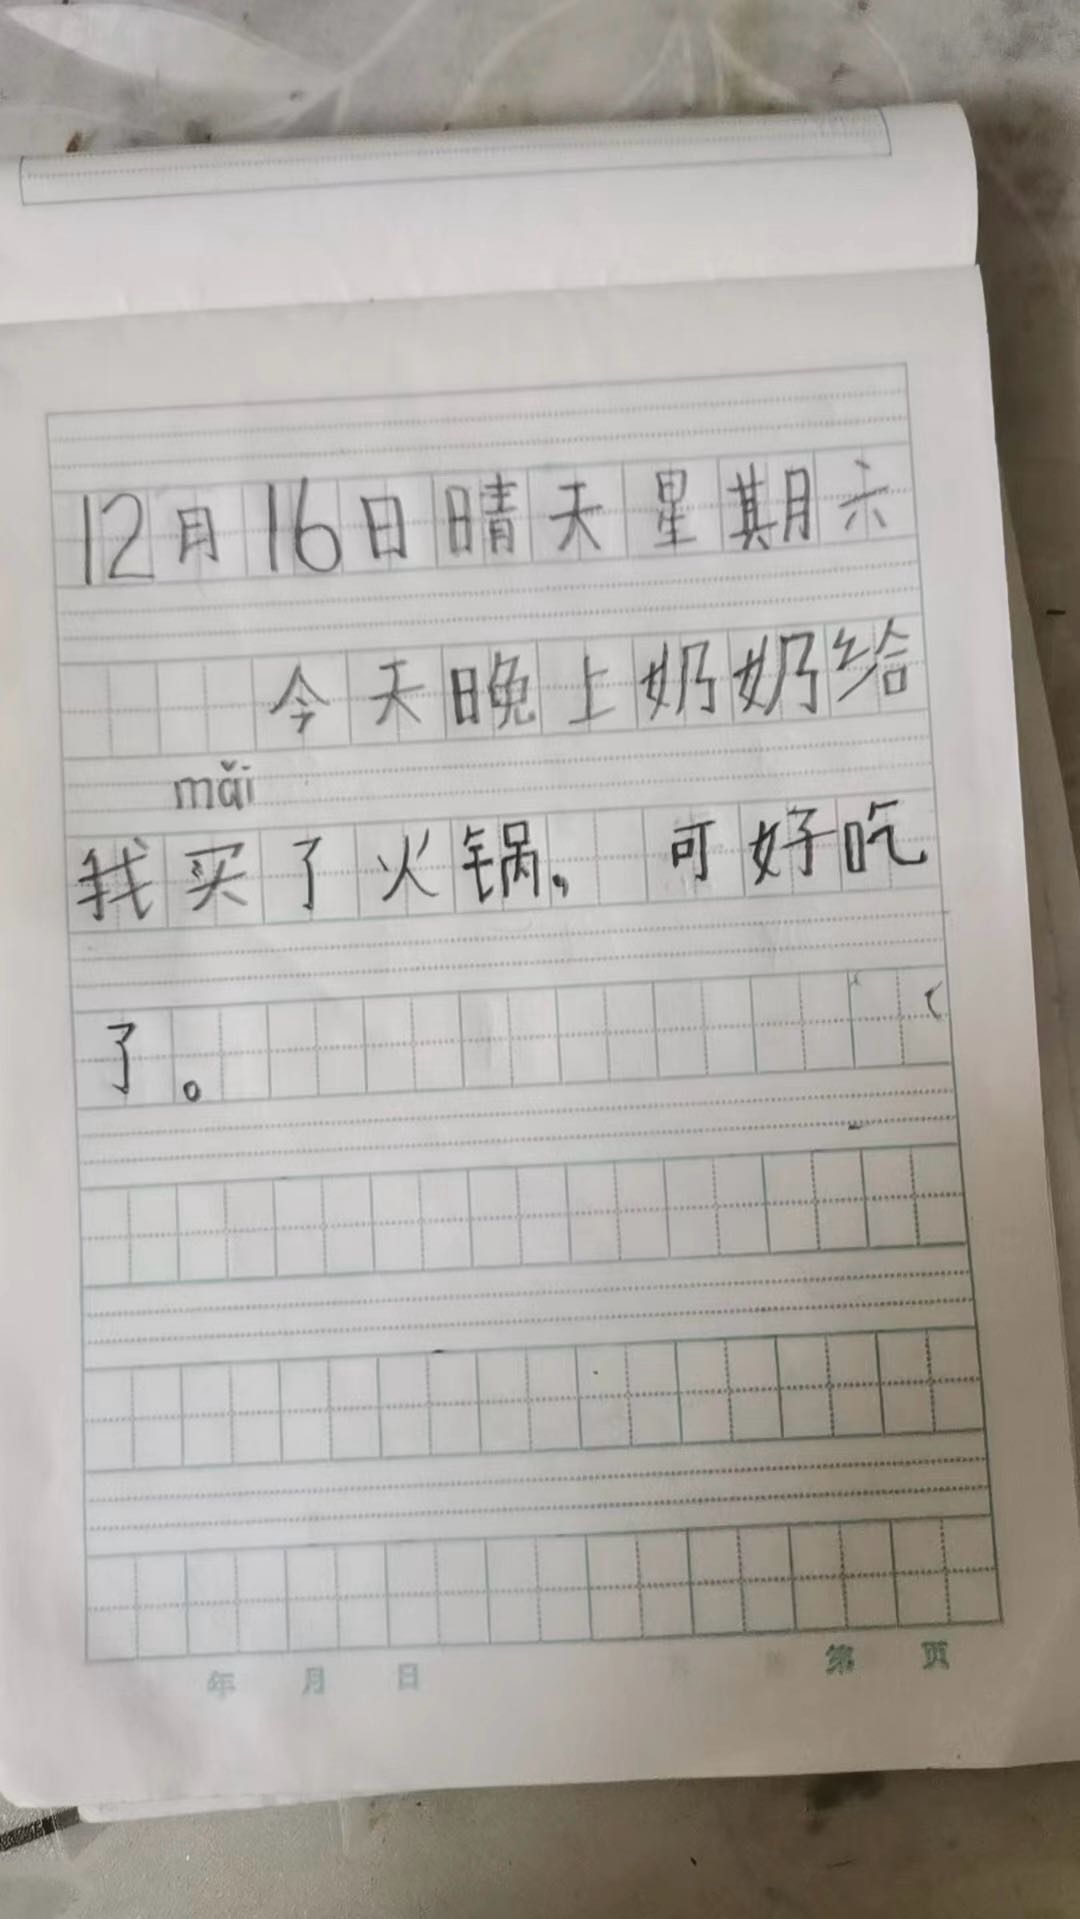 12月16日晴天星期六
今天晚上奶奶给
mǎi
我买了火锅，可好吃
了。
年 月 日 第 页